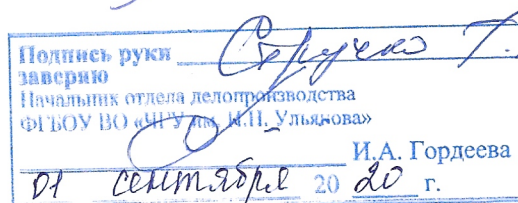 Подпись руки Сергученко Т.
заверяю
Начальник отдела делопроизводства
ФГБОУ ВО «ЧГУ им. И.Н. Ульянова»
И.А. Гордеева
01 сентября 2020 г.